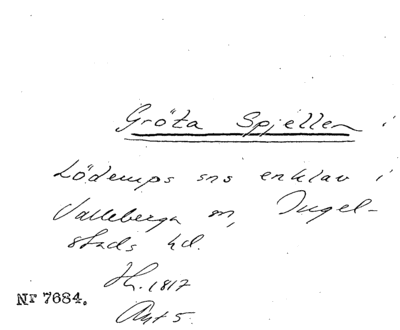 Gröta Spjellen i
Löderups sns enklav i
Valleberga sn, Ingel-
stads hd.
Jh. 1817
Akt 5.
Nr 7684.